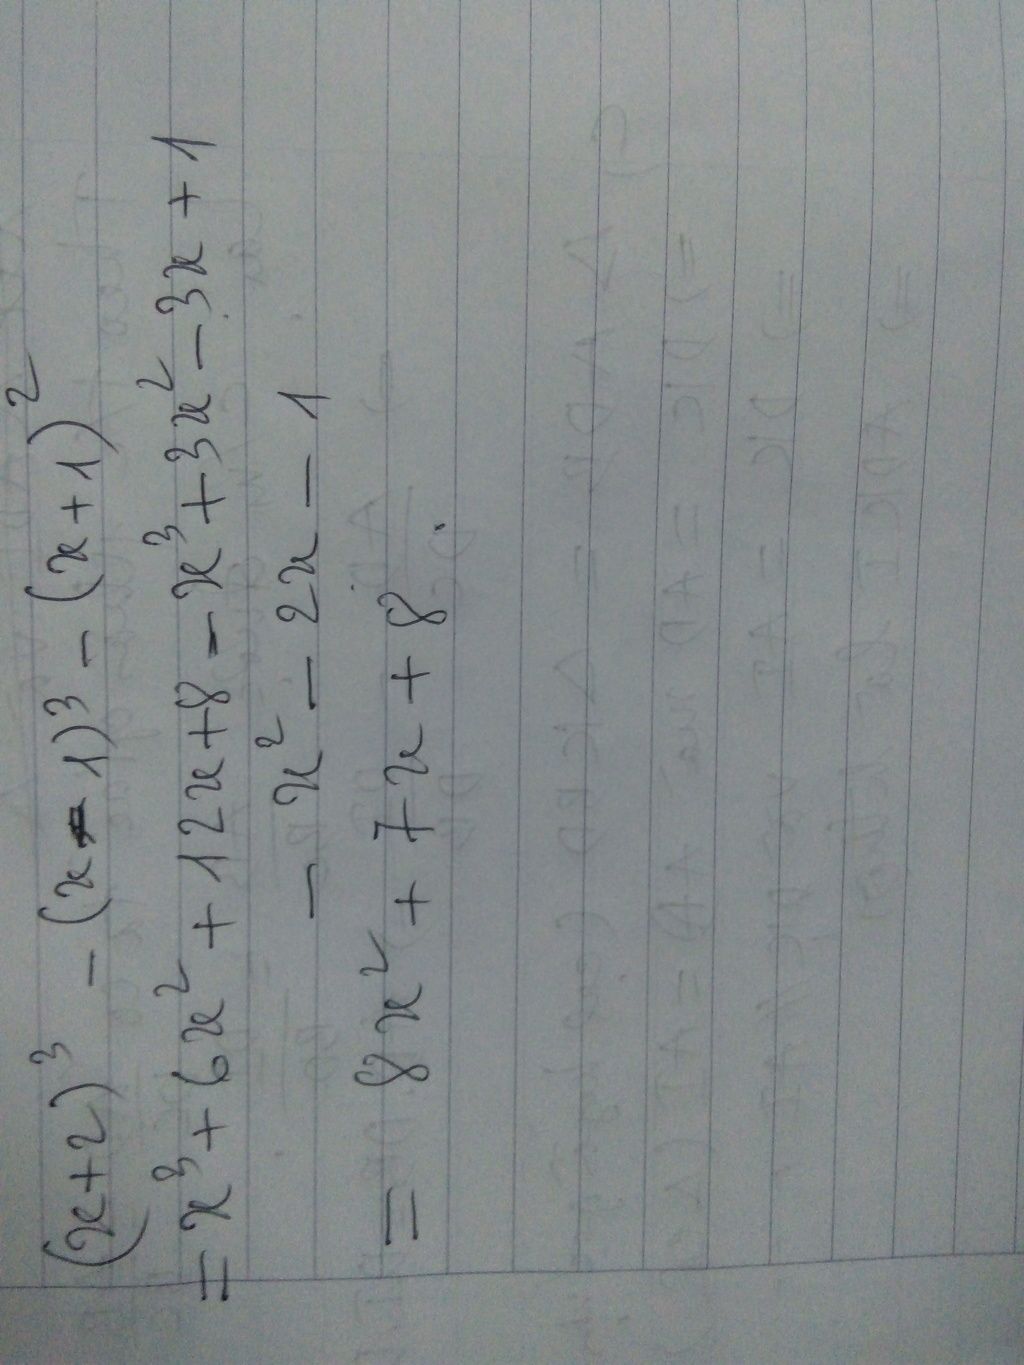 (x+2)³ - (x-1)³ - (x+1)²
= x³ + 6x² + 12x + 8 - x³ + 3x² - 3x + 1
- x² - 2x - 1
= 8x² + 7x + 8.